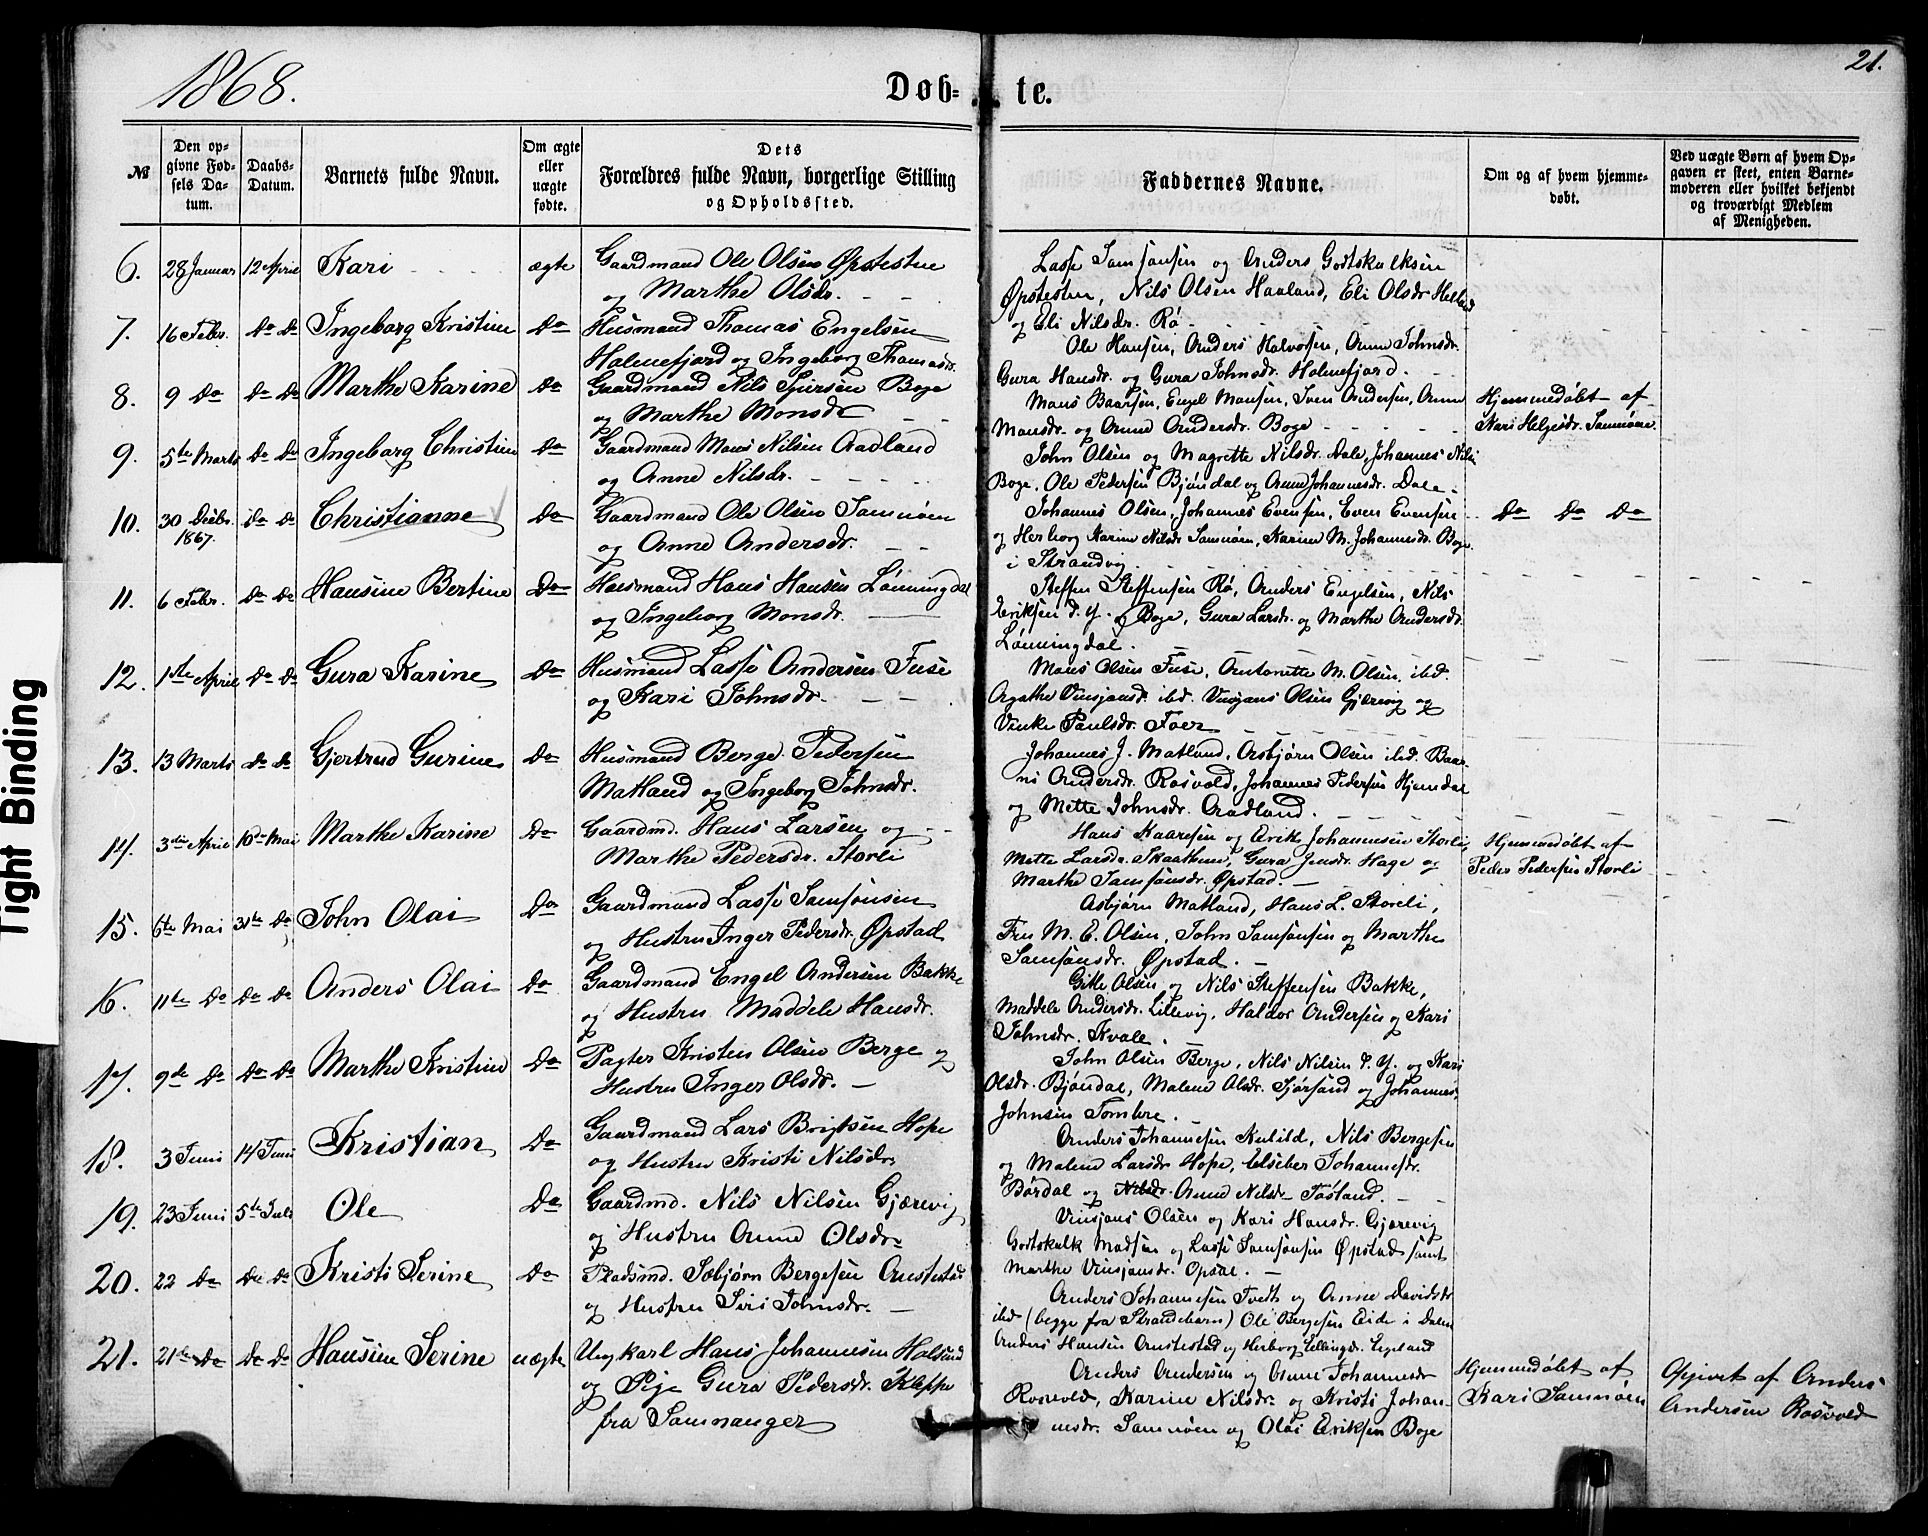 1868.
Døb-
te.
21.
№
Den op-
givne Fød-
sels Da-
tum.
Daabs-
Datum.
Barnets fulde Navn.
Om ægte
eller
uægte
fødte.
Dets
Forældres fulde Navn, borgerlige Stilling
og Opholdssted.
Faddernes Navne.
Om og af hvem hjemme-
døbt.
Ved uægte Børn af hvem Op-
gaven er skeet, enten Barne-
moderen eller hvilket bekjendt
og troværdigt Medlem
af Menigheden.
6. 28 Januar 12 April Kari ægte Gaardmand Ole Olsen Øpstestue
og Marthe Olsdr.
Lasse Samsonsen og Anders Godtskalksen
Øpstestue, Nils Olsen Haaland, Eli Olsdr Helland
og Eli Nilsdr. Rø
7. 16 Febr. Do Do Ingeborg Kristine Do Husmand Thomas Engelsen
Holmefjord og Ingeborg Thomasdr.
Ole Hansen, Anders Halvorsen, Anne Johnsdr.
Gura Hansdr. og Gura Johnsdr. Holmefjord.
8. 9 Do Do Do Marthe Karine Do Gaardmand Nils Sjursen Boge
og Marthe Monsdr
Mons Baarsen, Engel Monsen, Sven Andersen, Anne
Monsdr. og Anne Andersdr. Boge
Hjemmedøbt af
Kari Helgesdr. Samnøen
9. 5te Marts Do Do Ingeborg Christine Do Gaardmand Mons Nilsen Aadland
og Anne Nilsdr.
John Olsen og Magrette Nilsdr. Dale, Johannes Nilsen
Boge, Ole Pedersen Bjøndal og Anne Johannesdr. Dale.
10. 30 Decbr. 1867. Do Do Christianne Do Gaardmand Ole Olsen Samnøen
og Anne Andersdr.
Johannes Olsen, Johannes Evensen, Even Evensen
og Herborg Karine Nilsdr Samnøen, Karine M. Johannesdr. Boge
i Strandvig.
Do Do Do
11. 6 Febr. Do Do Hansine Bertine Do Husmand Hans Hansen Lønningdal
og Ingeborg Monsdr.
Steffen Steffensen Rø, Anders Engelsen, Nils
Eriksen d. Y. Boge, Gura Larsdr. og Marthe Andersdr.
Lønningdal.
12. 1ste April Do Do Gura Karine Do Husmand Lasse Andersen Fuse
og Kari Johnsdr.
Mons Olsen Fuse, Antonette M. Olsen, ibd.
Agathe Vinsjansd. ibd. Vinsjans Olsen Gjærevig og
Vinke Paulsdr.
13. 13 Marts Do Do Gjertrud Gurine Do Husmand Berge Pedersen
Matland og Ingeborg Johnsdr.
Johannes J. Matland, Asbjørn Olsen ibd. Baar-
ni Andersdr. Rosvold, Johannes Pedersen Hjemdal
og Mette Johnsdr. Aadland.
14. 3die April 10de Mai Marthe Karine Do Gaardmd. Hans Larsen og
Marthe Pedersdr. Storli
Hans Kaaresen og Erik Johannesen Storli,
Mette Larsdr. Skaathun, Gura Jensdr. Hage og
Marthe Samsonsdr. Øpstad.
Hjemmedøbt af
Peder Pedersen Storli
15. 6te Mai 31te Do John Olai Do Gaardmand Lasse Samsonsen
og Hustru Inger Pedersdr. Øpstad
Asbjørn Matland, Hans L. Storeli,
Fru M. E. Olsen, John Samsonsen og Marthe
Samsonsdr. Øpstad.
16. 11te Do Do Do Anders Olai Do Gaardmand Engel Andersen Bakke
og Hustru Maddele Hansdr.
Gitle Olsen og Nils Steffensen Bakke,
Maddele Andersdr. Lillevig, Haldor Andersen og Kari
Johnsdr. Kvale.
17. 9de Do Do Do Marthe Kristine Do Pagter Kristen Olsen Berge og
Hustru Inger Olsdr.
John Olsen Berge, Nils Nilsen d. Y. og Kari
Olsdr. Bjøndal, Malene Olsdr. Sjørsand og Johannes
Johnsen Tombre.
18. 3 Juni 14 Juni Kristian Do Gaardmand Lars Brigtsen Hope
og Hustru Kristi Nilsdr.
Anders Johannesen Kulild, Nils Bergesen
og Malene Larsdr Hope, Elseber Johannesdr.
Børdal og Anne Nilsdr.
19. 23 Juni 5te Juli Ole Do Gaardmd. Nils Nilsen Gjærevig
og Hustru Anne Olsdr.
Vinsjans Olsen og Kari Hansdr. Gjærevig
Godtskalk Madsen og Lasse Samsonsen Øpstad samt
Marthe Vinsjansdr. Opsal.
20. 22 Do Do Do Kristi Serine Do Pladsmd. Asbjørn Bergesen Anstestad
og Hustru Siri Johnsdr.
Anders Johannesen Tvedt og Anne Davidsdr
ibd (begge fra Strandebarm) Ole Bergesen Eide i Dalen
Anders Hansen Anstestad og Herborg Ellingdr.
21. 21de Do Do Do Hansine Serine uægte Ungkarl Hans Johannesen Holsund
og Pige Gura Pedersdr. Kleppe
fra Samnanger
Anders Andersen og Anne Johannesdr
Rosvold, Karine Nilsdr. og Kristi Johan-
nesdr. Samnøen og Olai Eriksen Boge
Hjemmedøbt af
Kari Samnøen
Opgivet af Anders
Andersen Rosvold
Tight Binding